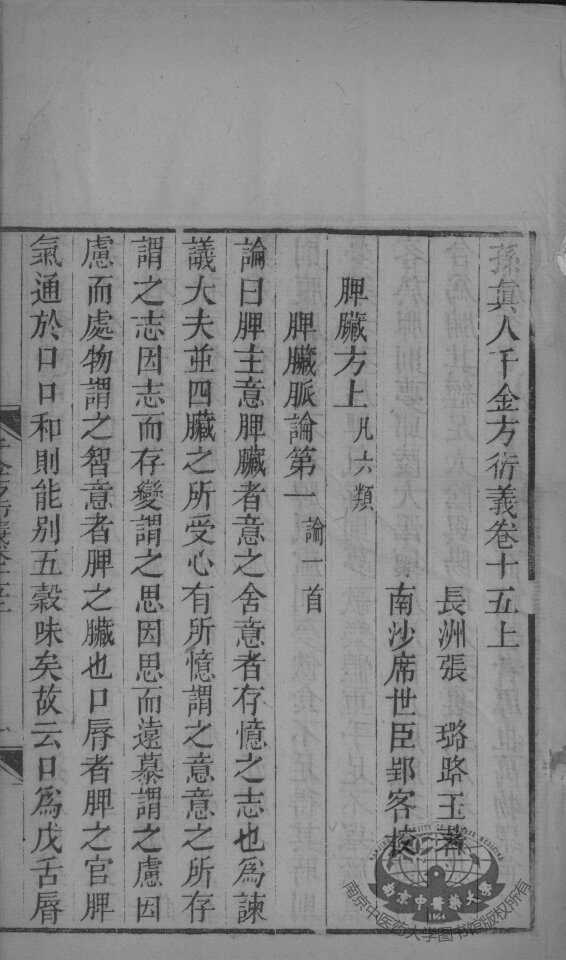 孫真人千金方衍義卷十五上
長洲張　璐路玉著
南沙席世臣郢客校
脾臟方上凡六類
脾臟脈論第一論一首
論曰脾主意脾臟者意之舍意者存憶之志也為諫
議大夫並四臟之所受心有所憶謂之意意之所存
謂之志因志而存變謂之思因思而遠慕謂之慮因
慮而處物謂之智意者脾之臟也口唇者脾之官脾
氣通於口口和則能别五穀味矣故云口為戊舌唇
南京中醫藥大學
1954
南京中医药大学图书馆版权所有